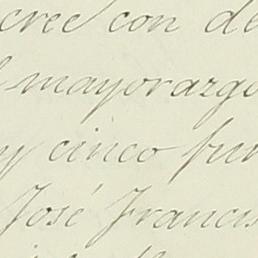 cree con de
mayorazgo
y cinco
José Francis